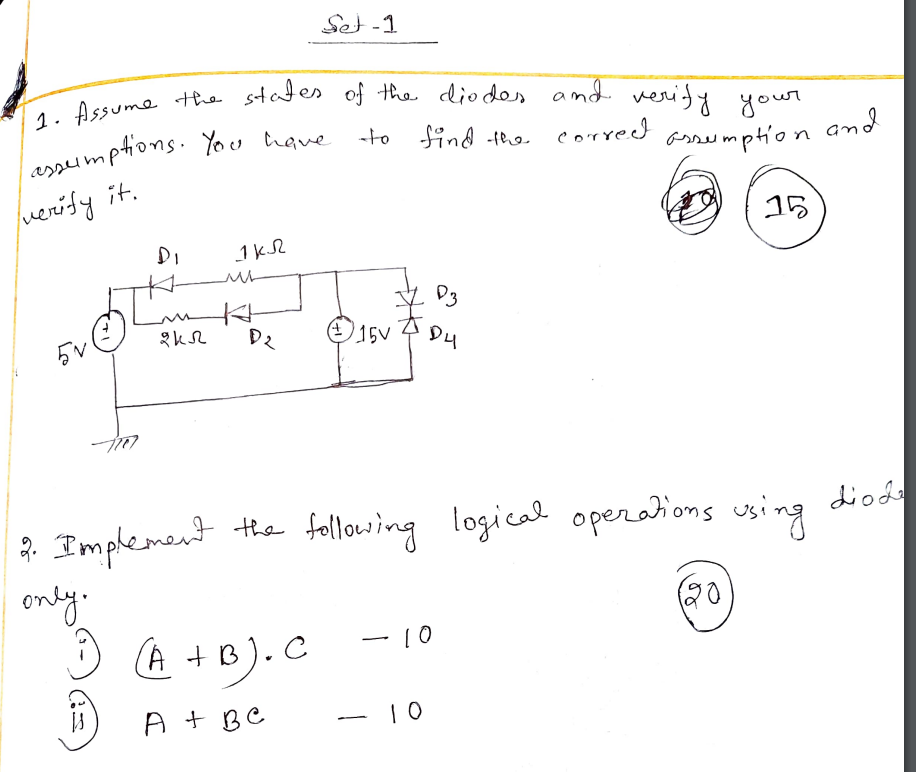 Set-1
1. Assume the states of the diodes and verify your
assumptions. You have to find the correct assumption and
verify it.
15
D1 1kΩ
D3
5V 2kΩ D2 15V D4
2. Implement the following logical operations using diode
only.
20
i) (A + B). C - 10
ii) A + BC - 10